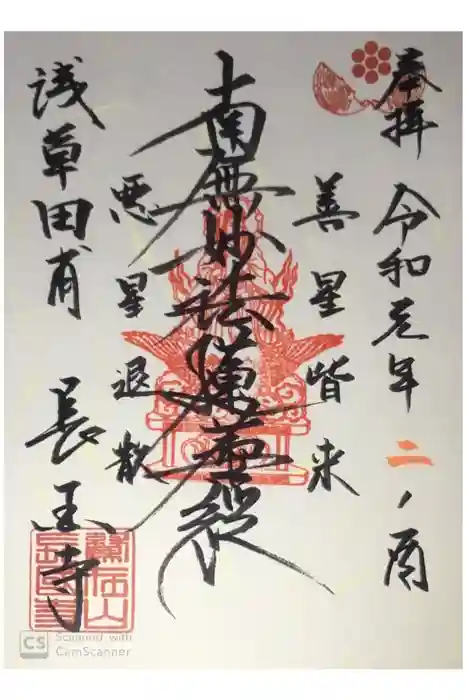 奉拝 令和元年 二ノ酉
善星皆来
南無妙法蓮華経
悪星退散
浅草田甫 長國寺
鷲在山
長國寺
CS Scanned with CamScanner